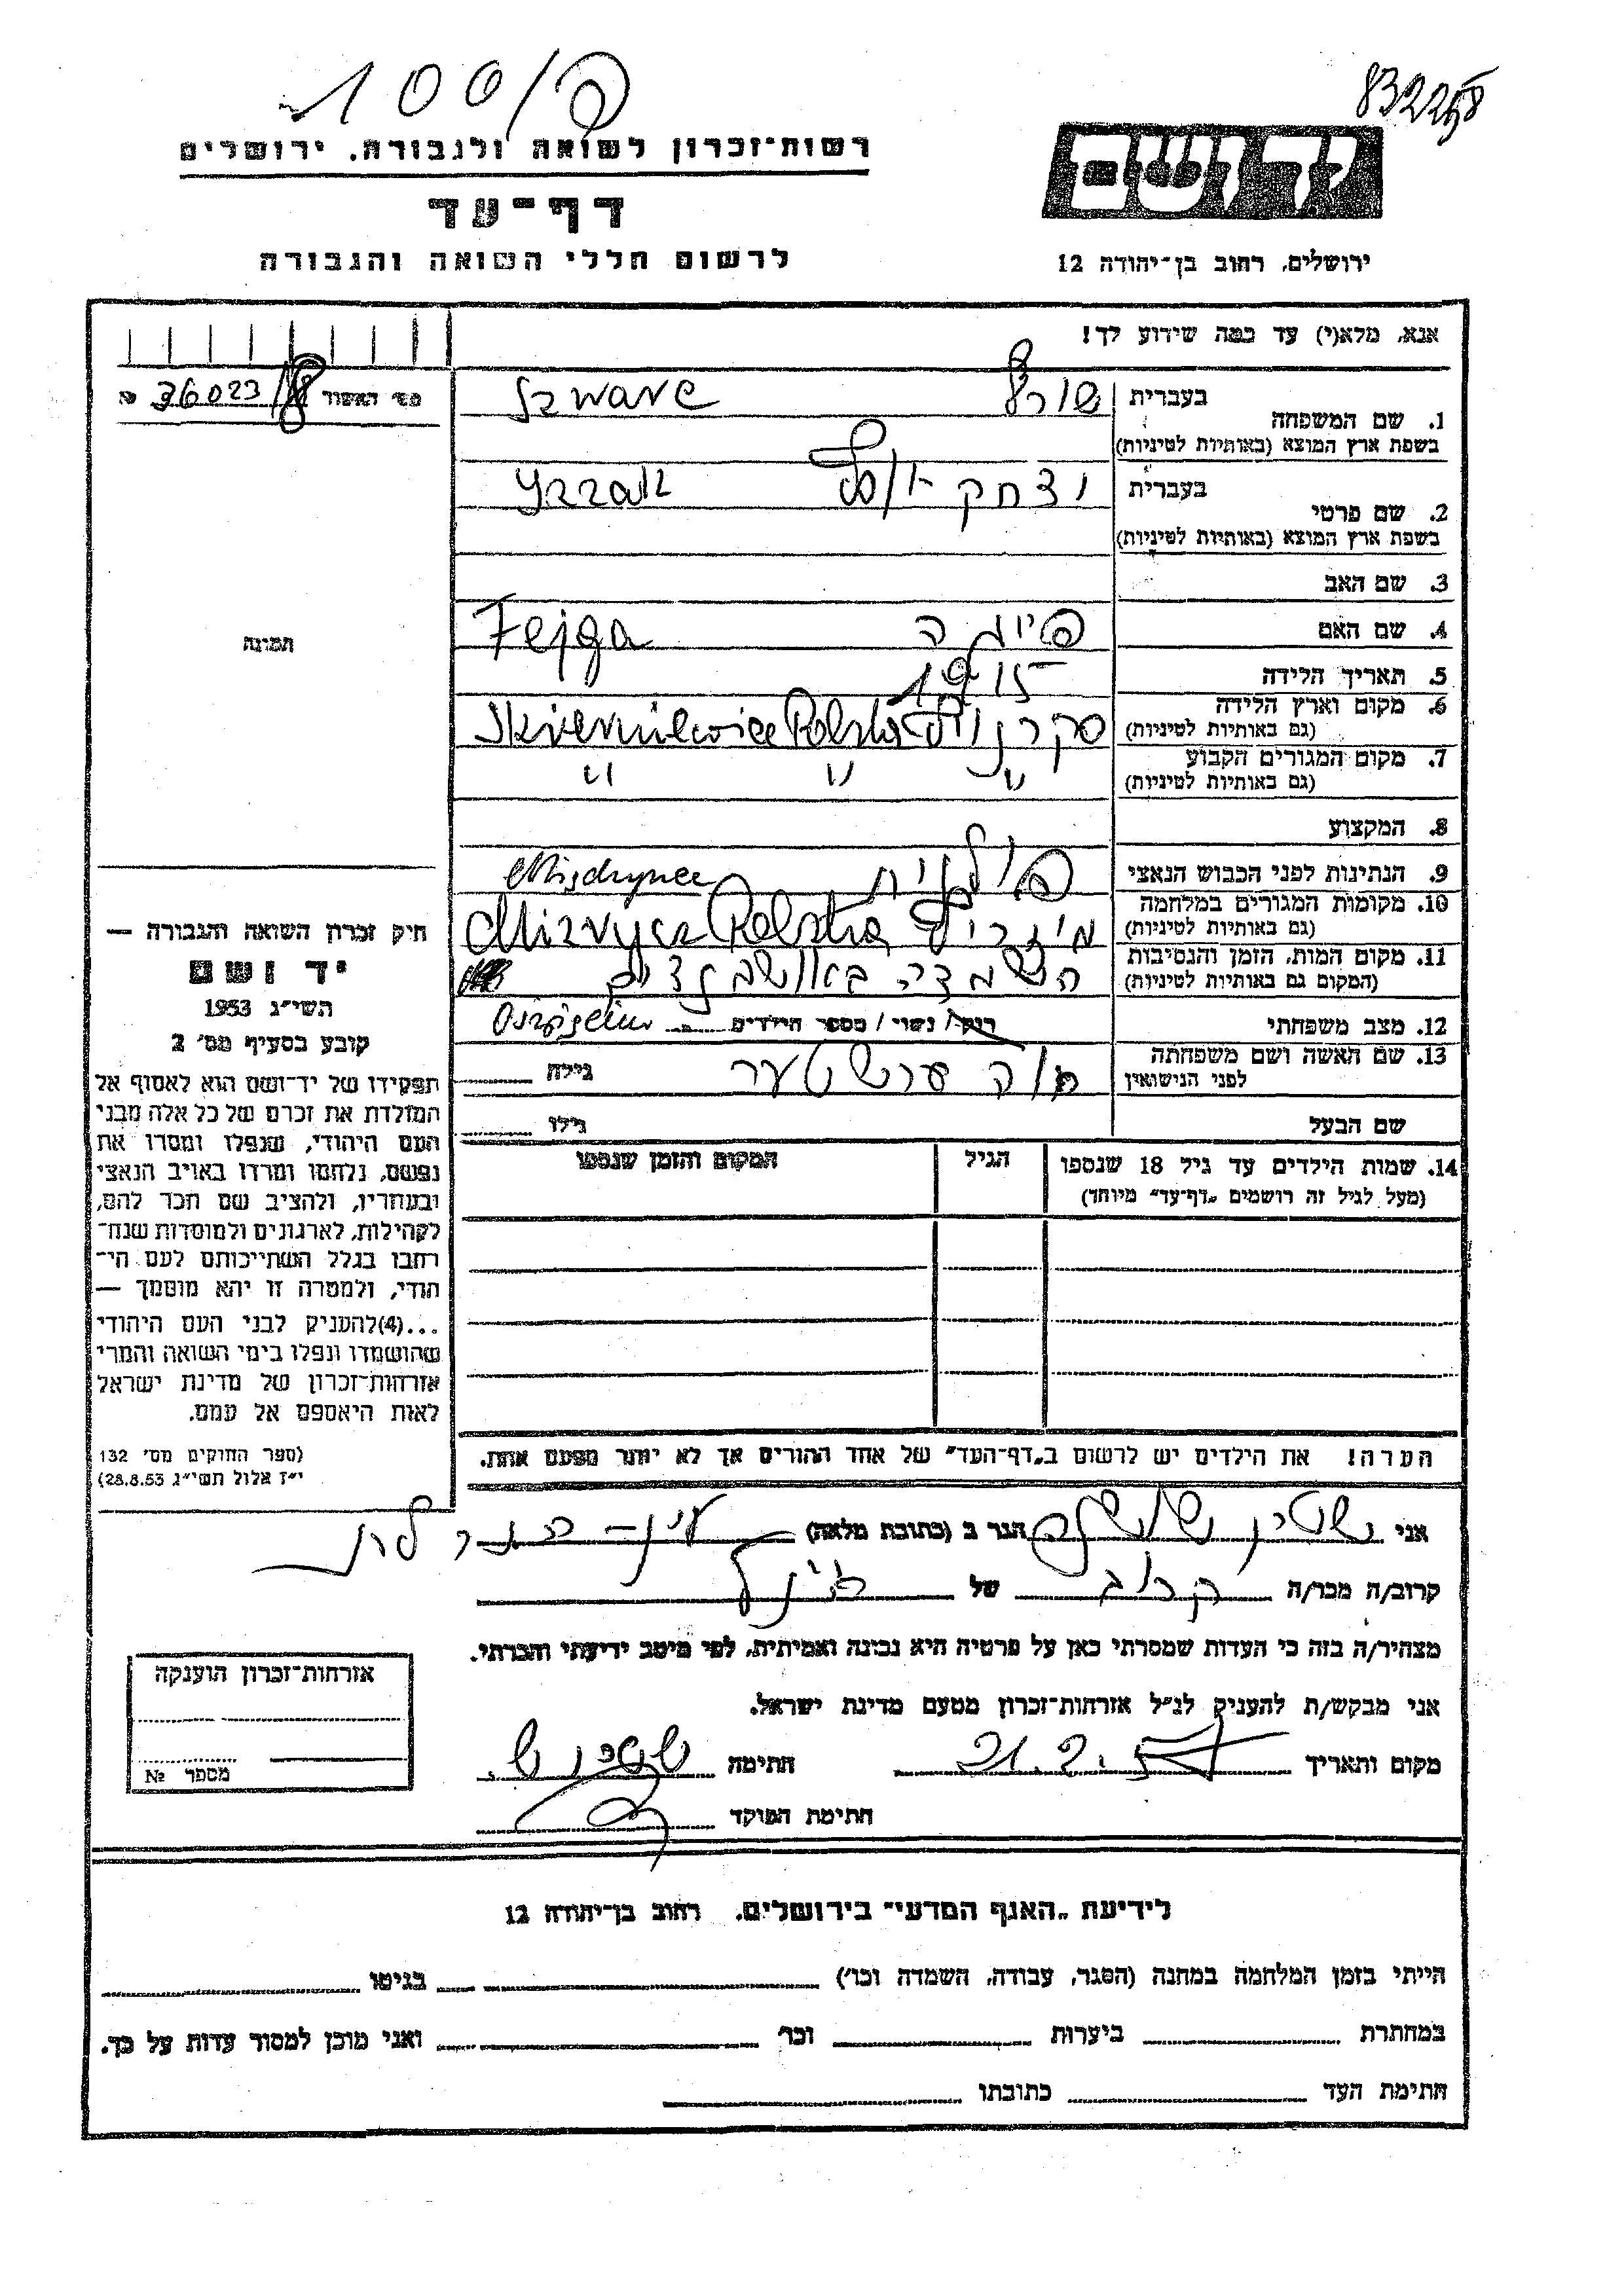 100/פ
83225
רשות־זכרון לשואה ולגבורה. ירושלים
יד ושם
דף־עד
לרשום חללי השואה והגבורה
ירושלים, רחוב בן־יהודה 12
אנא, מלא(י) עד כמה שידוע לך!
מס׳ האשור 36023/ №
בעברית
1. שם המשפחה
בשפת ארץ המוצא (באותיות לטיניות)
Szwarc
בעברית יצחק
2. שם פרטי
בשפת ארץ המוצא (באותיות לטיניות)
3. שם האב
4. שם האם פייגה Fejga
תמונה
5. תאריך הלידה 1915
6. מקום וארץ הלידה
(גם באותיות לטיניות)
Skierniewice Polska
7. מקום המגורים הקבוע
(גם באותיות לטיניות)
" " "
8. המקצוע
9. הנתינות לפני הכבוש הנאצי פולנית
10. מקומות המגורים במלחמה
(גם באותיות לטיניות)
Polska
11. מקום המות, הזמן והנסיבות
(המקום גם באותיות לטיניות)
12. מצב משפחתי רוק/ נשוי / מספר הילדים
13. שם האשה ושם משפחתה
לפני הנישואין
גילה
שם הבעל גילו
14. שמות הילדים עד גיל 18 שנספו הגיל המקום והזמן שנספו
(מעל לגיל זה רושמים „דף־עד״ מיוחד)
חיק זכרון השואה והגבורה —
יד ושם
תשי״ג 1953
קובע בסעיף מס׳ 2
תפקידו של יד־ושם הוא לאסוף אל
המולדת את זכרם של כל אלה מבני
העם היהודי, שנפלו ומסרו את
נפשם, נלחמו ומרדו באויב הנאצי
ובעוזריו, ולהציב שם וזכר להם,
לקהילות, לארגונים ולמוסדות שנח־
רבו בגלל השתייכותם לעם הי־
הודי, ולמטרה זו יהא מוסמך —
...(4)להעניק לבני העם היהודי
שהושמדו ונפלו בימי השואה והמרי
אזרחות־זכרון של מדינת ישראל
לאות היאספם אל עמם.
(ספר החוקים מס׳ 132
י״ז אלול תשי״ג 28.8.53)
הערה! את הילדים יש לרשום ב„דף־העד״ של אחד ההורים אך לא יותר מפעם אחת.
אני שטין שושנה הגר ב (כתובת מלאה)
קרוב/ה מכר/ה קרוב של
מצהיר/ה בזה כי העדות שמסרתי כאן על פרטיה היא נכונה ואמיתית, לפי מיטב ידיעתי והכרתי.
אני מבקש/ת להעניק לנ״ל אזרחות־זכרון מטעם מדינת ישראל.
מקום ותאריך חתימה שטין ש.
חתימת הפוקד
אזרחות־זכרון הוענקה
מספר №
לידיעת „האגף המדעי״ בירושלים. רחוב בן־יהודה 12
הייתי בזמן המלחמה במחנה (הסגר, עבודה, השמדה וכו׳) בגיטו
במחתרת ביערות וכו׳ ואני מוכן למסור עדות על כך.
חתימת העד כתובתו